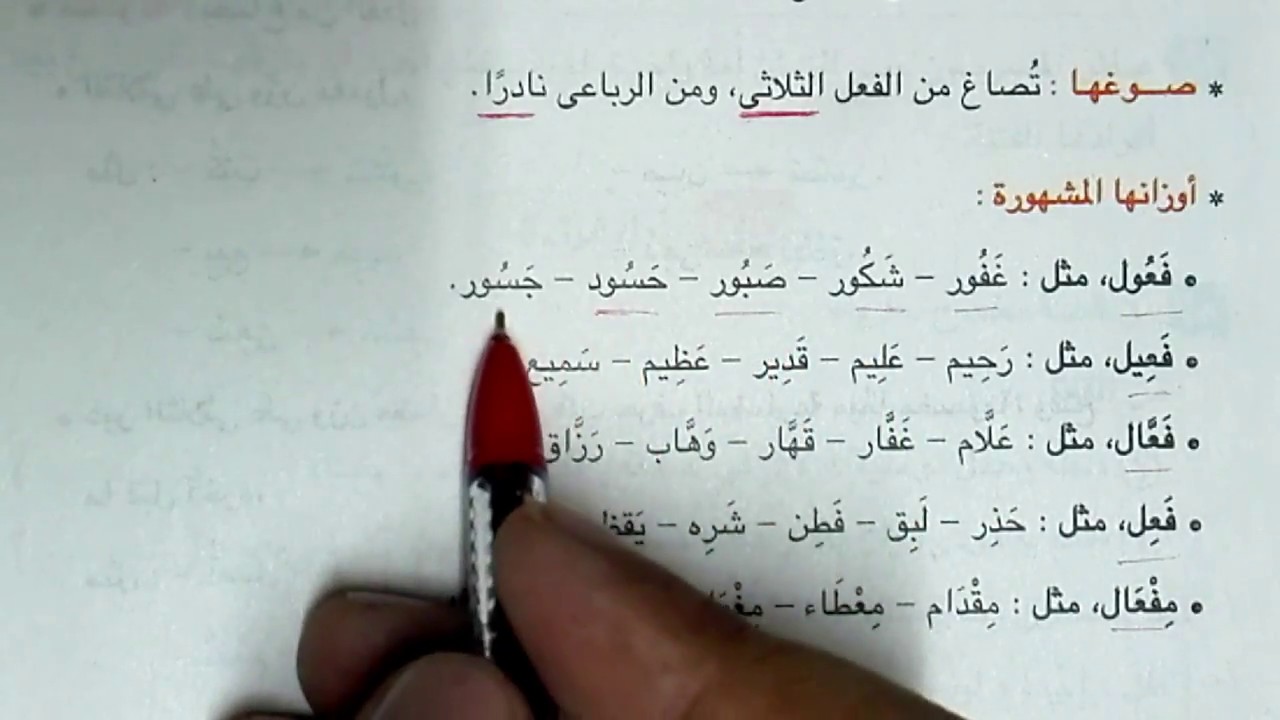 * صـوغها : تُصاغ من الفعل الثلاثى، ومن الرباعى نادرًا.
* أوزانها المشهورة :
• فَعُول، مثل : غَفُور – شَكُور – صَبُور – حَسُود – جَسُور.
• فَعِيل، مثل : رَحِيم – عَلِيم – قَدِير – عَظِيم – سَمِيع
• فَعَّال، مثل : عَلَّام – غَفَّار – قَهَّار – وَهَّاب – رَزَّاق
• فَعِل، مثل : حَذِر – لَبِق – فَطِن – شَرِه – يَقِظ
• مِفْعَال، مثل : مِقْدَام – مِعْطَاء –